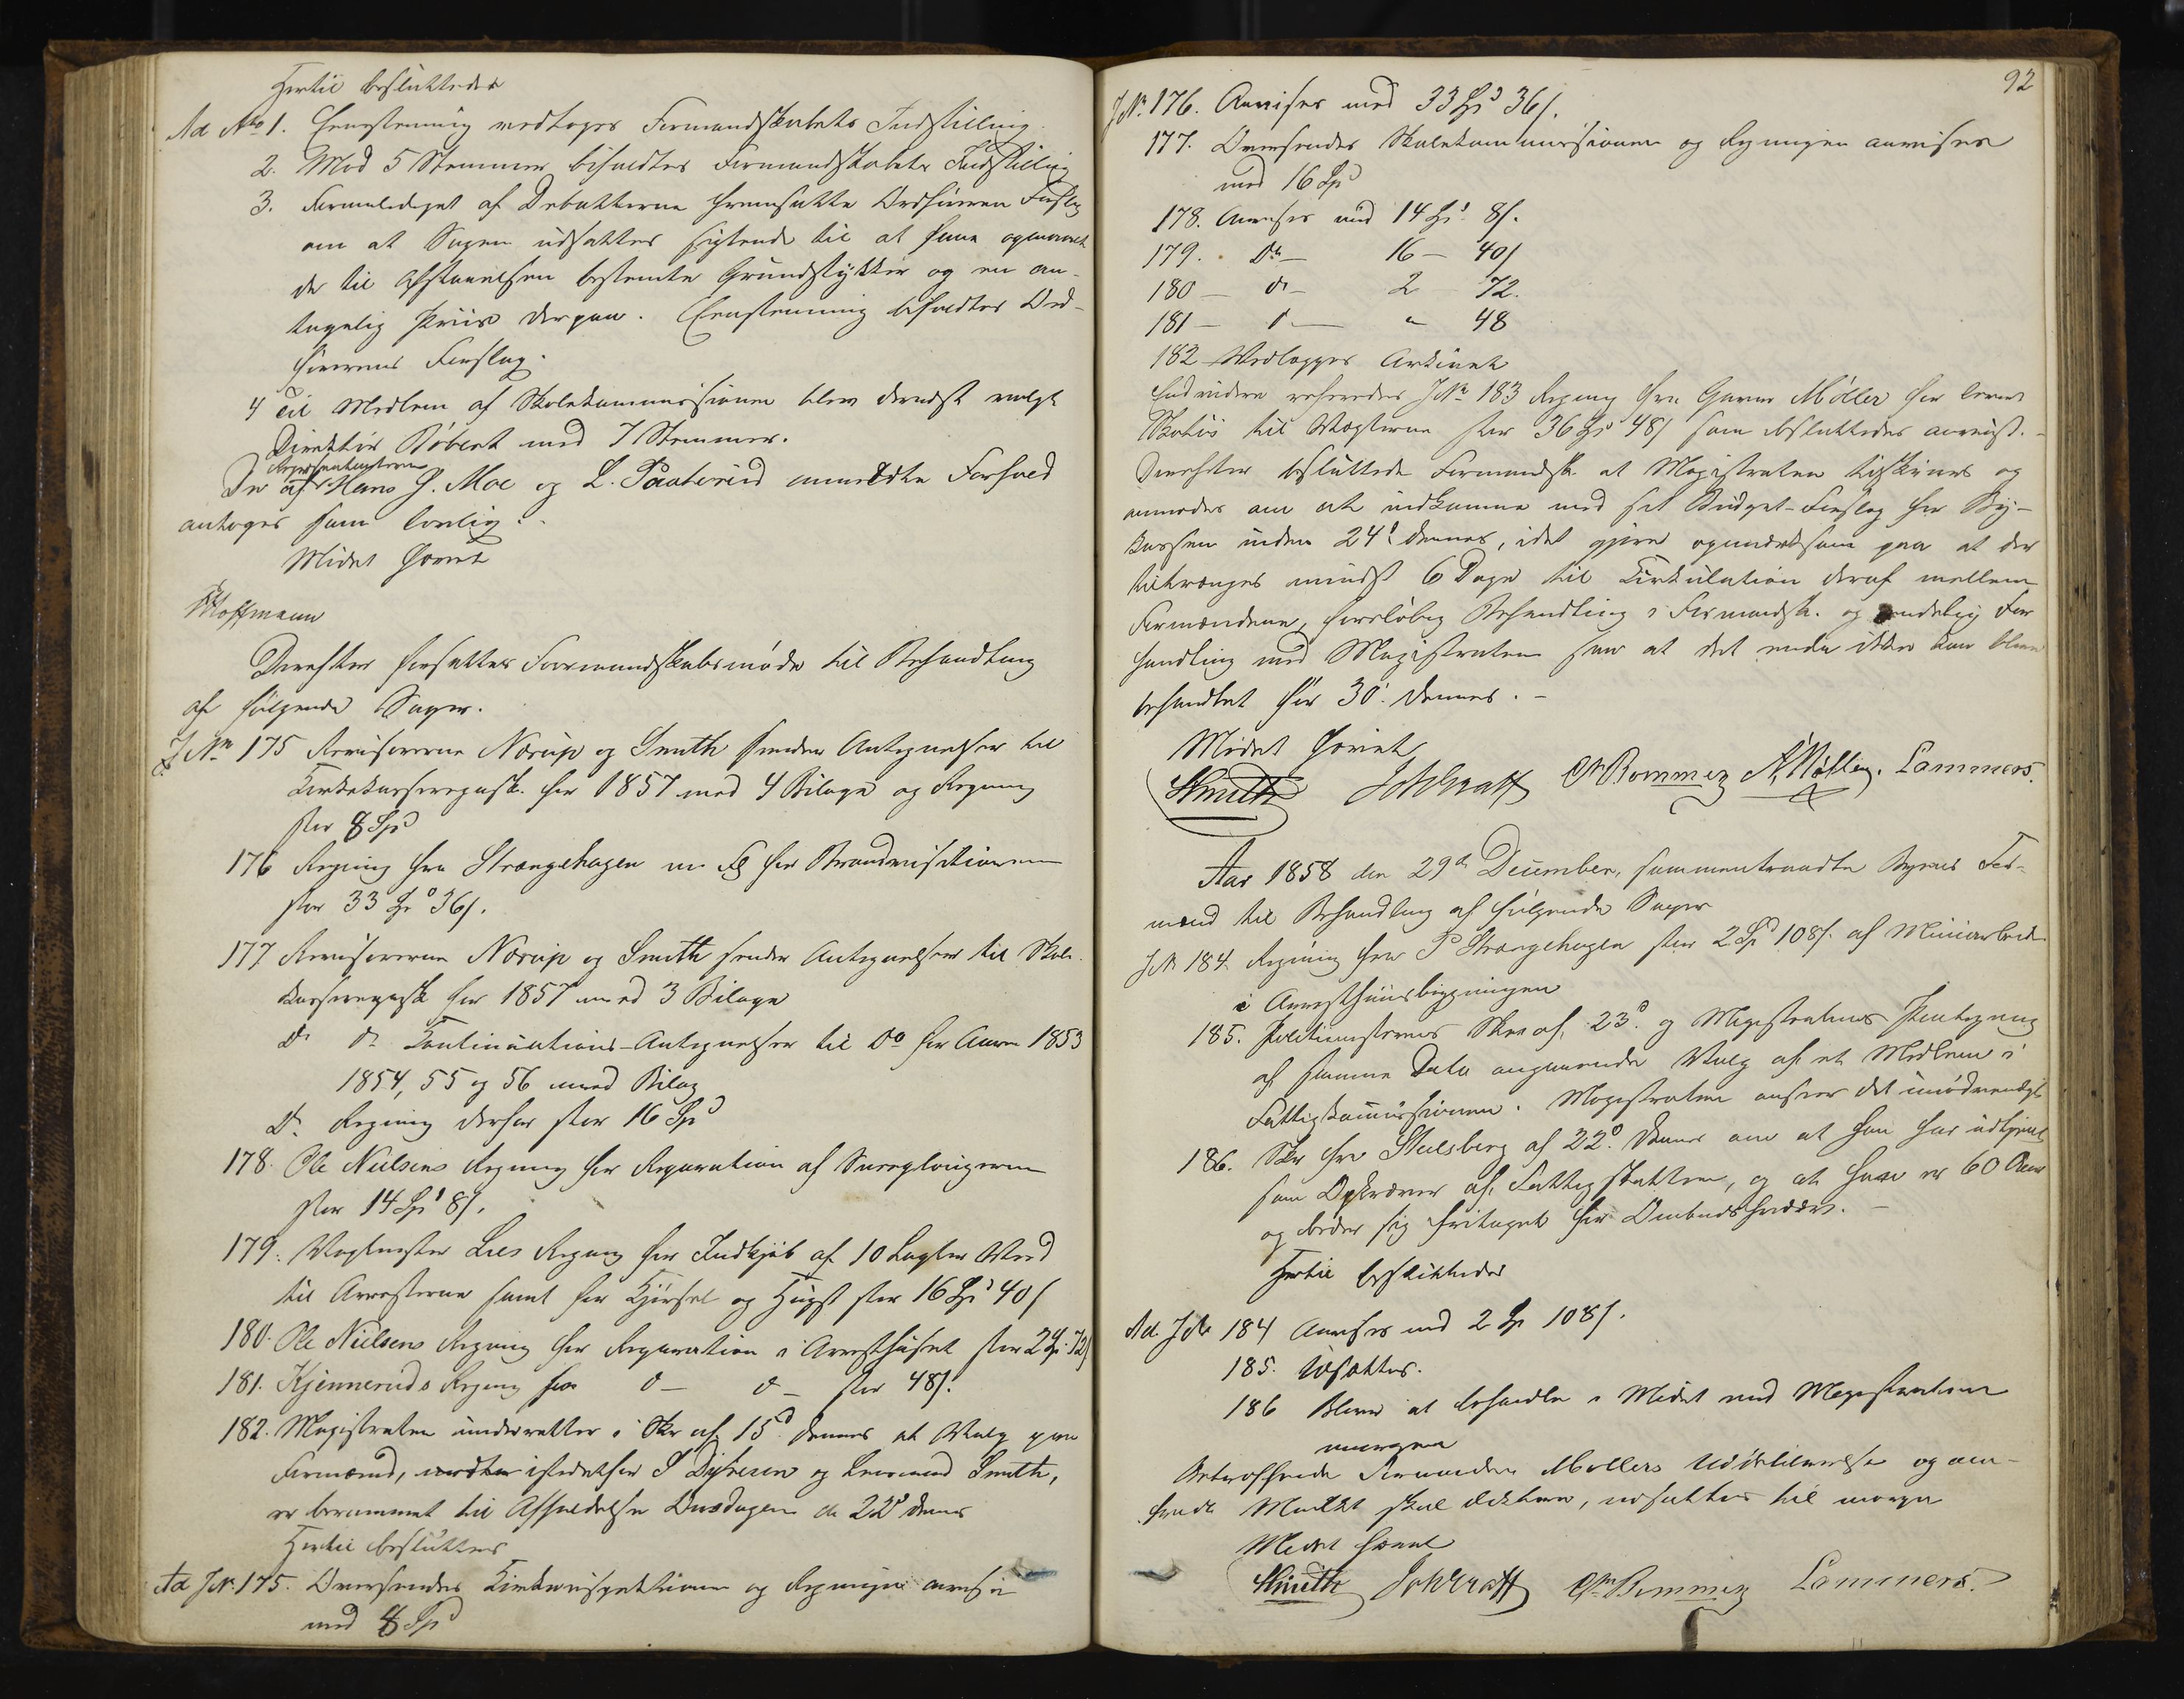 Hertil besluttedes
Ad No 1. Eenstemmig vedtoges Formandskabets Indstilling.
2. Mod 5 Stemmer bifaldtes Formandskabets Indstilling
3. Foranlediget af Debatterne fremsatte Ordføreren Forslag
om at Sagen udsættes sigtende til at faae opmaalt
de til Afstaaelsen bestemte Grundstykker og en an-
tagelig Priis derpaa. Eenstemmig bifaldtes Ord-
førerens Forslag.
4 Til Medlem af Skolekommissionen blev dernæst valgt
Direktør Røbert med 7 Stemmer.
Repræsentanterne
De af Hans G. Moe og L. anmeldte Forfald
antoges som lovlig.
Mødet hævet
Hoffmann
Derefter fortsattes Formandskabsmøde til Behandling
af følgende Sager.
J No 175 Revisorerne Nørup og Smith sender Antegnelser til
Kirkekasseregnsk. for 1857 med 4 Bilage og Regning
stor 8 Spd
176 Regning fra Strangehagen m. fl for Brandvisitationen
stor 33 Spd 36 s.
177 Revisorerne Nørup og Smith sender Antegnelser til Skole-
kasseregnsk for 1857 med 3 Bilage
do do Continuations-Antegnelser til Do for Aarene 1853
1854, 55 og 56 med Bilag
do Regning derfor stor 16 Spd
178. Ole Nielsens Regning for Reparation af
stor 14 Spd 8 s.
179. Vagtmester Lies Regning for Indkjøb af 10 Ved
til Arresterne samt for Kjørsel og Hugst stor 16 Spd 40 s
180. Ole Nielsens Regning for Reparation i Arresthuset stor 2 Sp. 72 s
181. Kjenneruds Regning for d— d— stor 48 s.
182. Magistraten underretter i Skr af 15d dennes at Valg paa
Formænd, istedetfor S Dyhren og Smith,
er berammet til Afholdelse Onsdagen de 22d dennes
Hertil besluttedes
Ad J No. 175. Oversendes Kirkeinspektionen og Regningen anvises
med 8 Spd
92
J No. 176. Anvises med 33 Spd 36 s.
177. Oversendes Skolekommissionen og Regningen anvises
med 16 Spd
178. Anvises med 14 Spd. 8 s.
179. Do — 16 — 40 s
180 — do — 2 72.
181 — d — " 48
182 Vedlægges Arkivet
Endvidere refereredes J No 183 Regning fra Garver Møller for leveret
til Vægterne stor 36 Spd 48 s som besluttedes anviist. -
Derefter besluttede Formandsk. at Magistraten tilskrives og
anmodes om at indkomme med sit Budget-Forslag for By-
kassen inden 24d dennes, idet gjøres opmærksom paa at der
tiltrænges mindst 6 Dage til Cirkulation deraf mellem
Formændene, foreløbig Behandling i Formandsk. og endelig For
handling med Magistraten saa at det endda ikke kan blive
behandlet før 30. dennes. -
Mødet hævet
Smith Joh Bratt Chr Bommen A, Lammers.
Aar 1858 den 29de December, sammentraadte Byens For-
mænd til Behandling af følgende Sager
J No 184. Regning fra P Strangehagen stor 2 Spd 108 s. af Muurarbeide
i Arresthuusbygningen
185. Politimesterens Skr af 23d. og Magistratens Paategning
af samme Dato angaaende Valg af et Medlem i
Fattigkommissionen. Magistraten anseer det unødvendigt
186. Skr fra Stulsberg af 22d. dennes om at han har udtjent
som Opkræver af Fattigskatten, og at han er 60 Aar
og beder sig fritaget for Ombudet.
Hertil besluttedes
Ad. J No 184 Anvises med 2 Sp 108 s.
185. Udsættes.
186 Bliver at behandle i Mødet med Magistraten
morgen
Betræffende Formanden Møllers og om-
hvide Mulkt skal dikteres, udsættes til morgen
Mødet hævet
Smith Joh Bratt Chr Bommen Lammers.